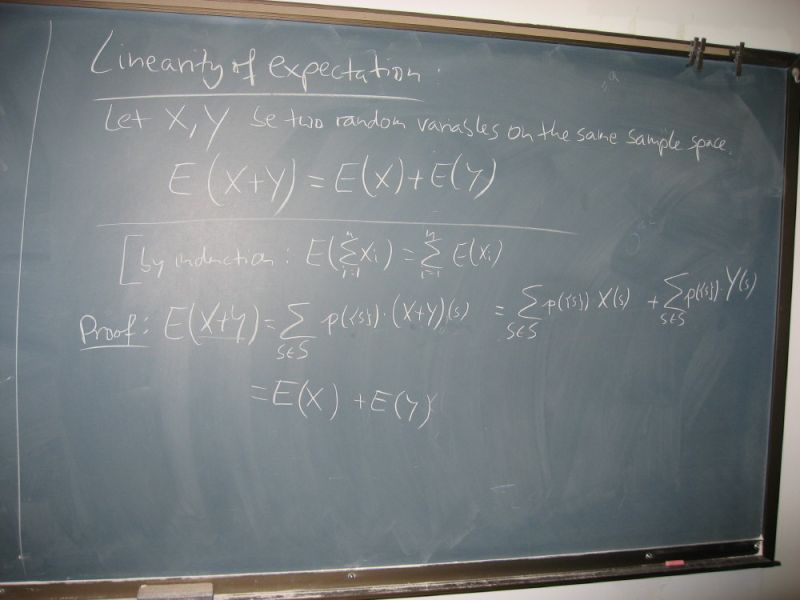 Linearity of expectation:
Let X, Y be two random variables on the same sample space.
E(X+Y) = E(X) + E(Y)
[by induction: E(∑_{i=1}^{n} X_i) = ∑_{i=1}^{n} E(X_i)
Proof: E(X+Y) = ∑_{s∈S} p({s})·(X+Y)(s) = ∑_{s∈S} p({s}) X(s) + ∑_{s∈S} p({s})·Y(s)
= E(X) + E(Y)